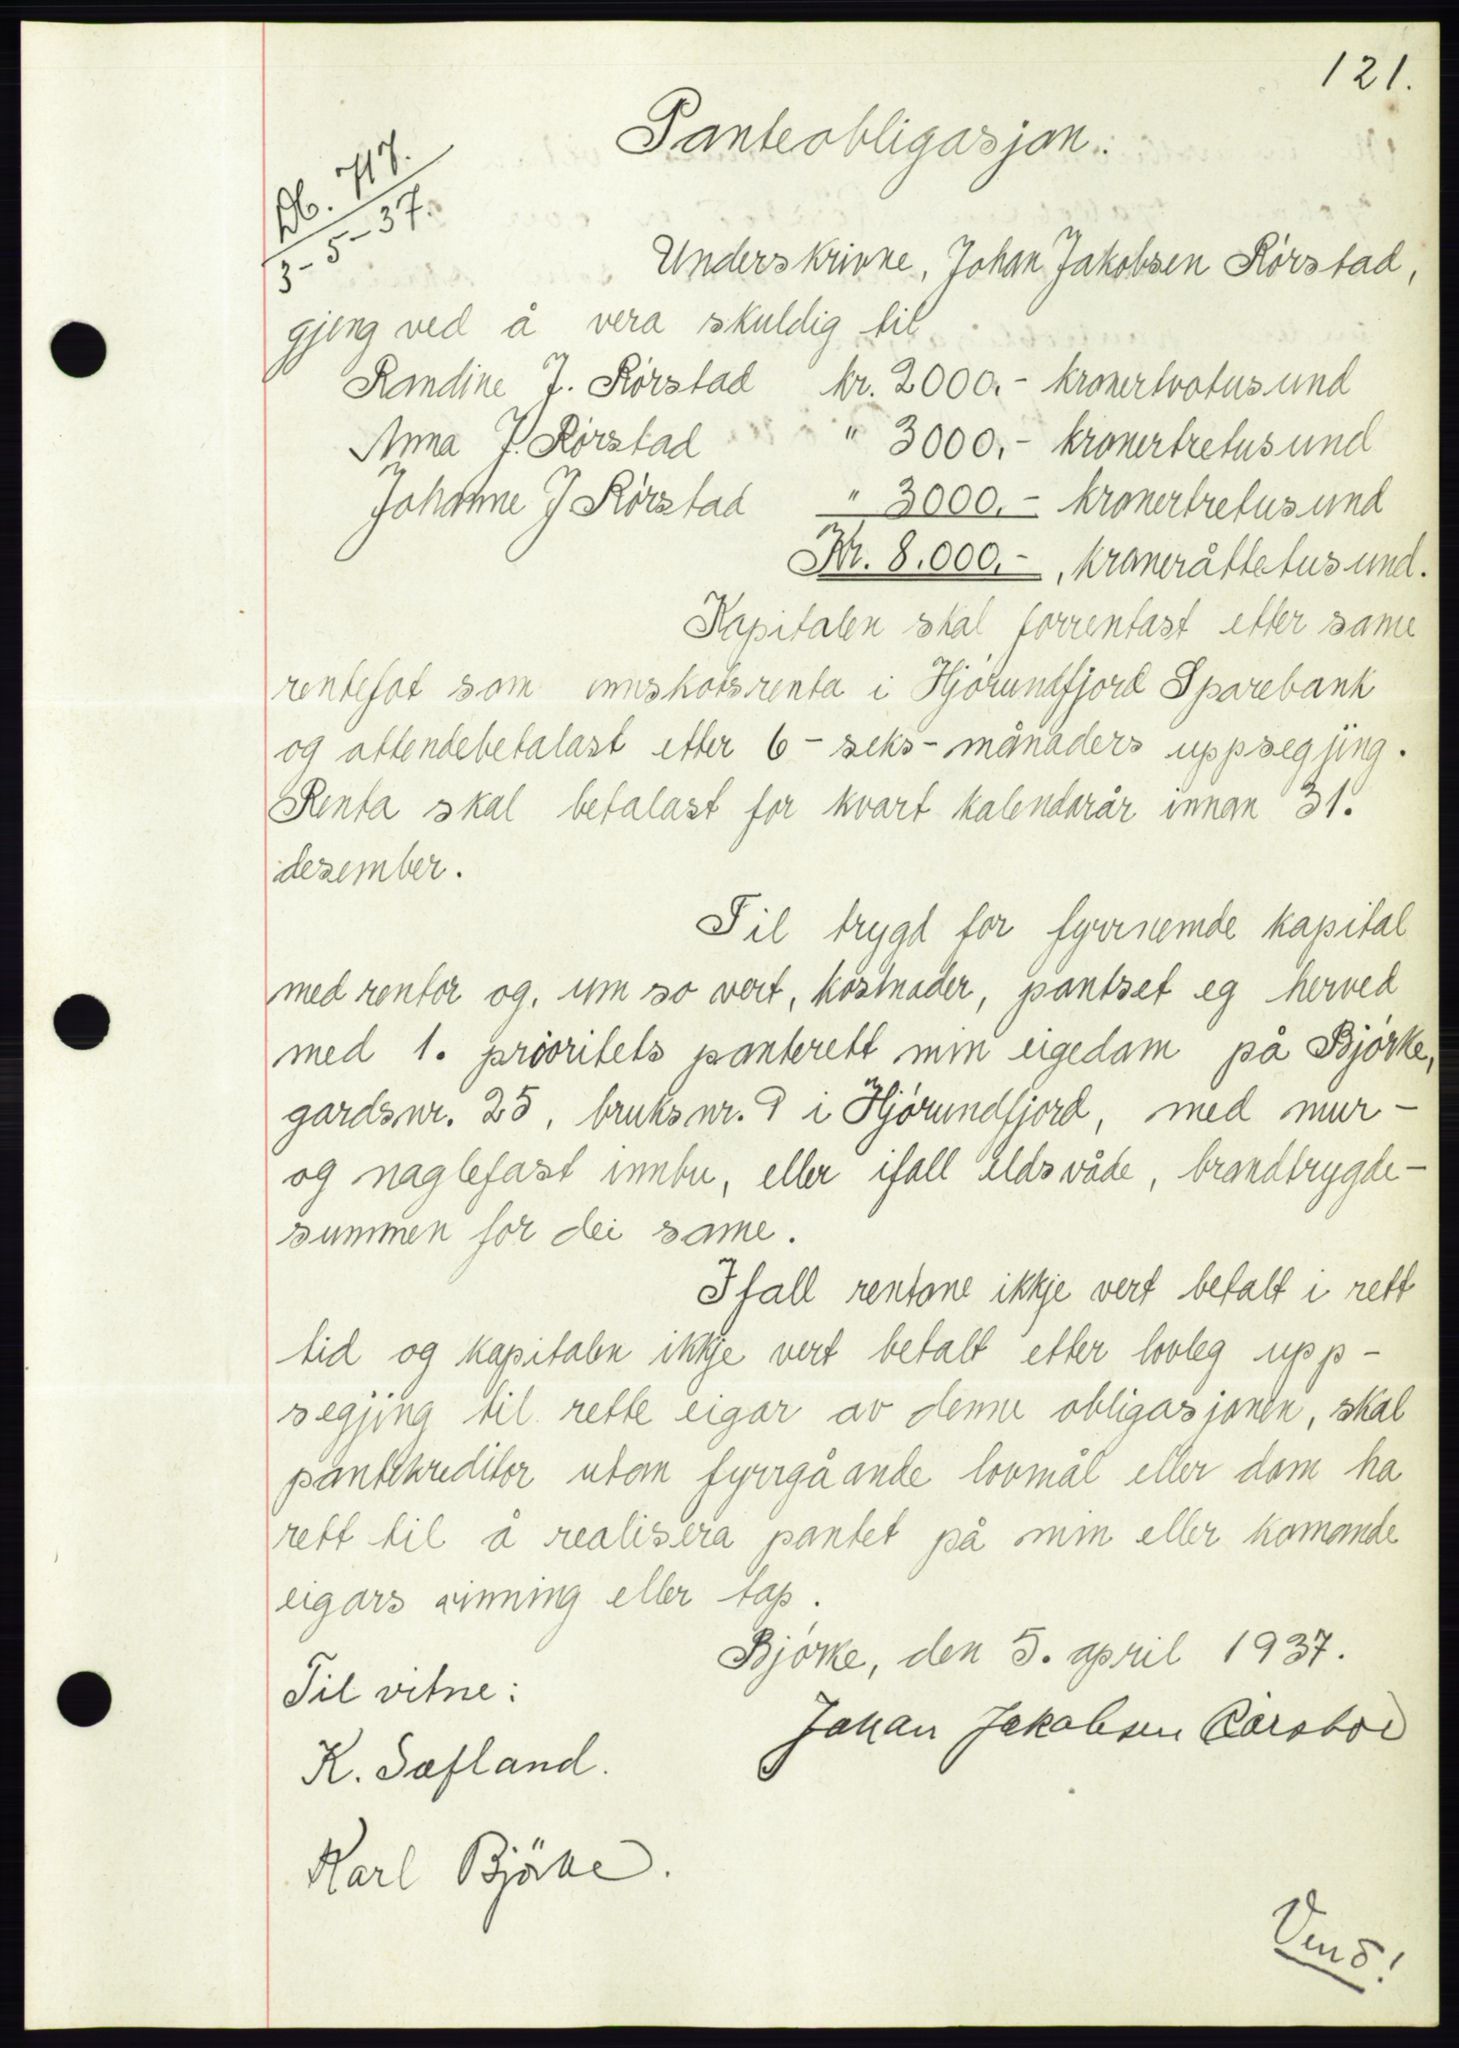 121.
Panteobligasjon.
Db. 717.
3-5-37.
Underskrivne, Johan Jakobsen Rørstad,
gjeng ved å vera skuldig til
Randine J. Rørstad kr. 2000.- kronertvotusund
Anna J. Rørstad " 3000.- kronertretusund
Johanne J Rørstad " 3000.- kronertretusund
Kr. 8.000.-, kroneråttetusund.
Kapitalen skal forrentast etter same
rentefot som innskotsrenta i Hjørundfjord Sparebank
og attendebetalast etter 6 - seks - månaders uppsegjing.
Renta skal betalast for kvart kalendarår innan 31.
desember.
Til trygd for fyrrnemde kapital
med rentor og, um so vert, kostnader, pantset eg herved
med 1. prioritets panterett min eigedom på Bjørke,
gardsnr. 25, bruksnr. 9 i Hjørundfjord, med mur-
og naglefast innbu, eller ifall eldsvåde, brandtrygde-
summen for dei same.
Ifall rentone ikkje vert betalt i rett
tid og kapitalen ikkje vert betalt etter lovleg upp-
segjing til rette eigar av denne obligasjonen, skal
pantekreditor utan fyrrgåande lovmål eller dom ha
rett til å realisera pantet på min eller komande
eigars vinning eller tap.
Bjørke, den 5. april 1937.
Til vitne:
Johan Jakobsen Rørstad
K. Sæfland.
Karl Björke.
Vend!